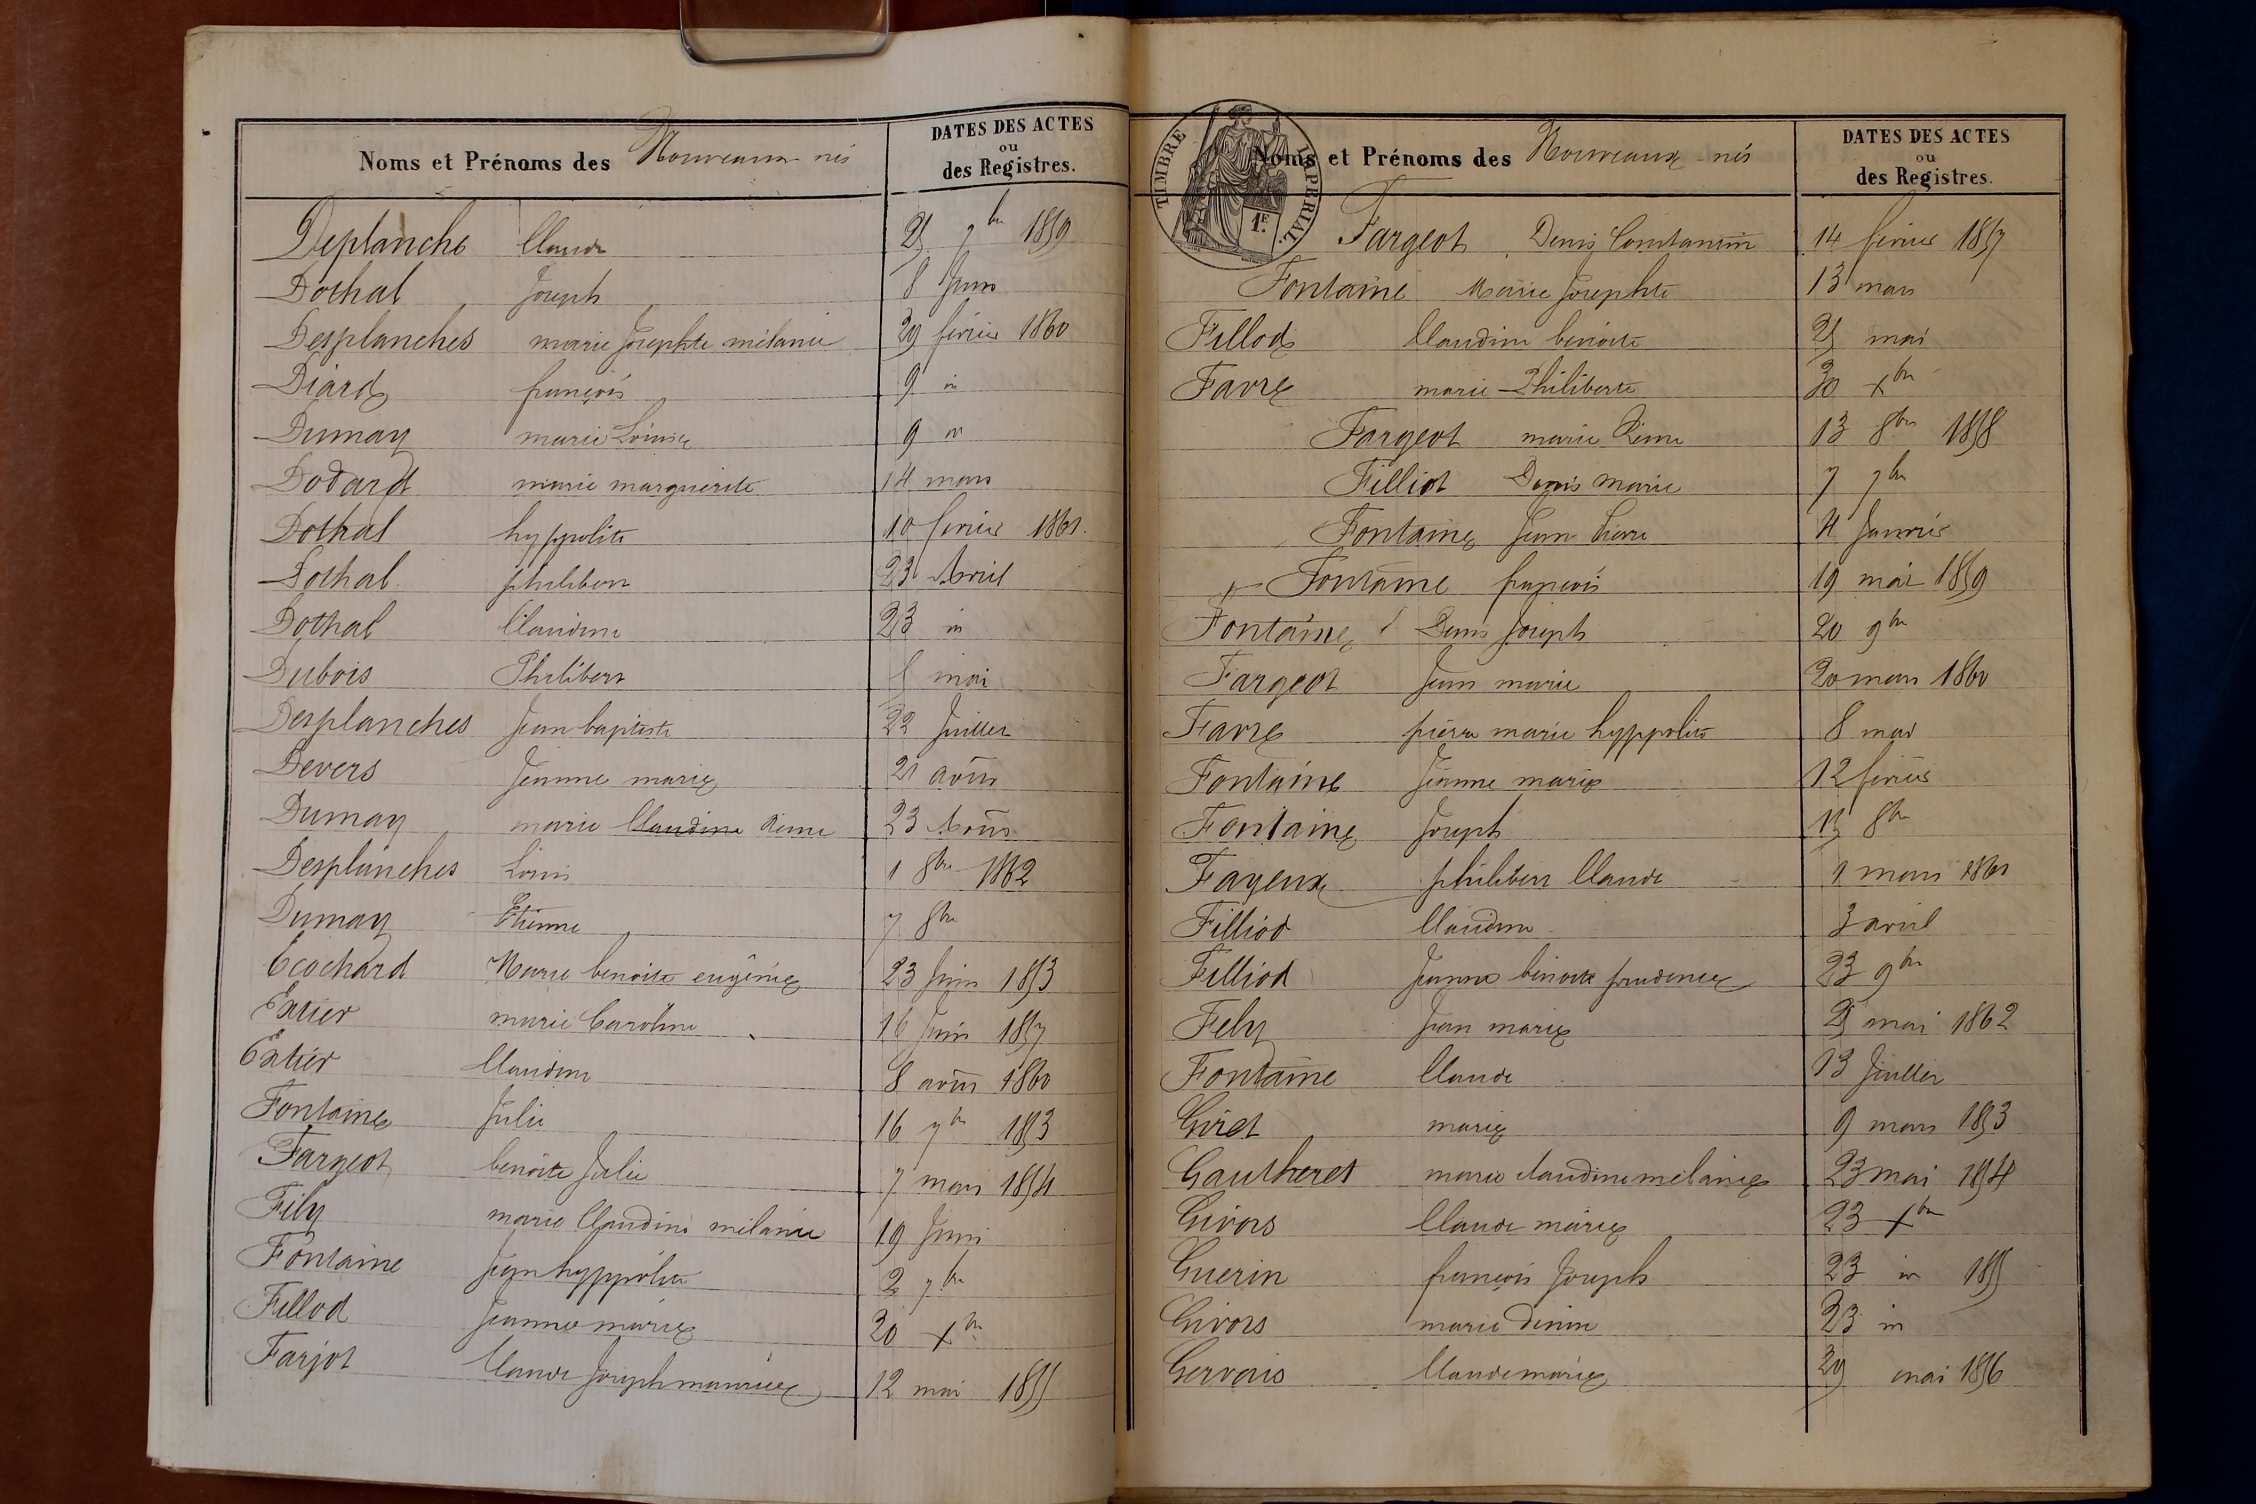 Noms et Prénoms des Nouveaux nés
DATES DES ACTES
ou
des Registres.
Deplanche Claude 25 7bre 1859
Dothal Joseph 8 Juin
Desplanches marie Josephte mélanie 29 février 1860
Diard françois 9 in
Dumay marie Louise 9 in
Dodard marie marguerite 14 mars
Dothal hyppolite 10 février 1861.
Dothal philibert 23 Avril
Dothal Claudine 23 in
Dubois Philibert 5 mai
Desplanches Jean baptiste 22 Juillet
Devers Jeanne marie 21 août
Dumay marie Claudine Reine 23 Août
Desplanches Louis 1 8bre 1862
Dumay Etienne 7 8bre
Ecochard Marie benoite eugénie 23 Juin 1853
Extier marie Caroline 16 Juin 1857
Extier Claudine 8 août 1860
Fontaine Julie 16 7bre 1853
Fargeot benoite Julie 7 mars 1854
Fily marie Claudine mélanie 19 Juin
Fontaine Jean hyppolite 2 7bre
Fillod Jeanne marie 20 Xbre
Farjot Claude Joseph maurice 12 mai 1855
TIMBRE IMPERIAL.
1F.
Noms et Prénoms des Nouveaux-nés
DATES DES ACTES
ou
des Registres.
Fargeot Denis Constantin 14 février 1857
Fontaine Marie Josephte 13 mars
Fillod Claudine benoite 25 mai
Favre marie Philiberte 30 Xbre
Fargeot marie Reine 13 8bre 1858
Filliot Denis marie 7 7bre
Fontaine Jean Pierre 4 Janvier
Fontaine françois 19 mai 1859
Fontaine Denis Joseph 20 9bre
Fargeot Jean marie 20 mars 1860
Favre pierre marie hyppolite 8 mai
Fontaine Jeanne marie 12 février
Fontaine Joseph 13 8bre
Fayeux philibert Claude 1 mars 1861
Filliod Claudine 3 avril
Filliod Jeanne benoite prudence 23 9bre
Fely Jean marie 25 mai 1862
Fontaine Claude 13 Juillet
Giret marie 9 mars 1853
Gautheret marie claudine mélanie 23 mai 1854
Givors Claude marie 23 Xbre
Guerin françois Joseph 23 in 1855
Givors marie Denise 23 in
Gervais Claude marie 29 mai 1856